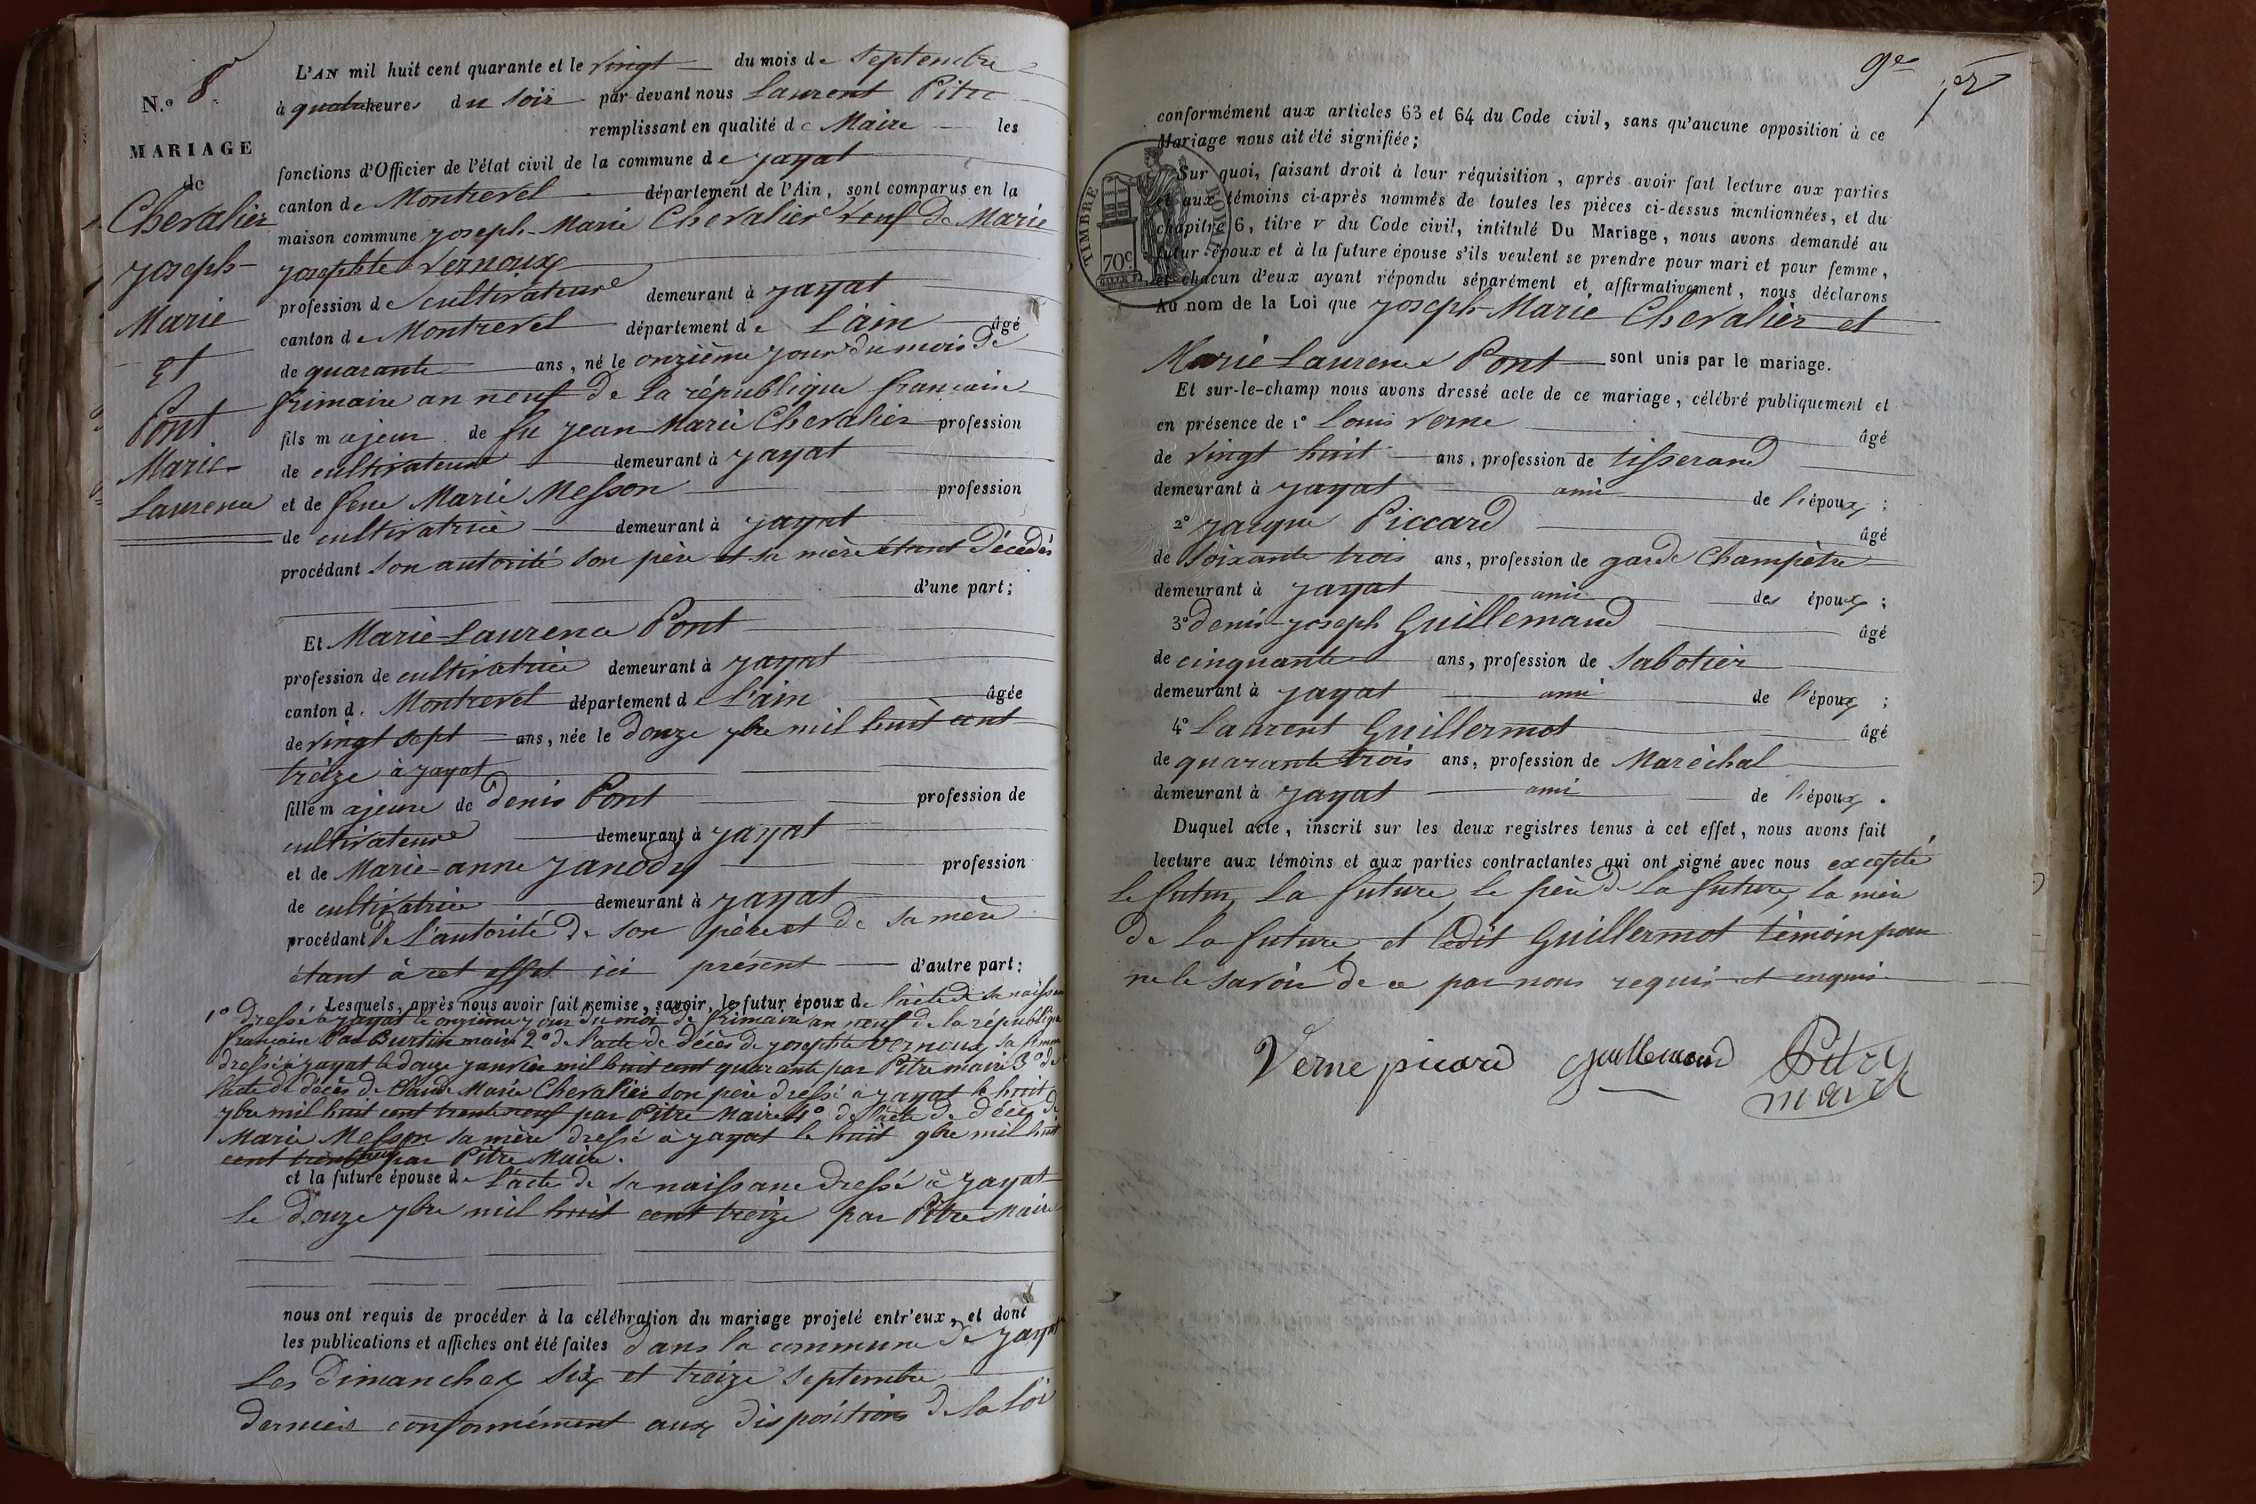 N.o 8
MARIAGE
de
Chevalier
joseph-
Marie
Et
Pont
Marie-
Laurence
L'AN mil huit cent quarante et le vingt du mois de Septembre
à quatre heures du soir par devant nous Laurent Pitre
remplissant en qualité de Maire les
fonctions d'Officier de l'état civil de la commune de jayat
canton de Montrevel département de l'Ain, sont comparus en la
maison commune joseph-Marie Chevalier veuf de Marie
josephte Vernoux
profession de cultivateur demeurant à jayat
canton de Montrevel département de L'ain âgé
de quarante ans, né le onzième jour du mois de
frimaire an neuf de la république francaise
fils majeur de fu jean-Marie Chevalier profession
de cultivateur demeurant à jayat
et de feue Marie Messon profession
de cultivatrice demeurant à jayat
procédant son autorité son père et sa mère étant décédés
d'une part;
Et Marie-Laurence Pont
profession de cultivatrice demeurant à jayat
canton d. Montrevel département de L'ain âgée
de vingt sept ans, née le douze 7bre mil huit cent
treize à jayat
fille majeure de denis Pont profession de
cultivateur demeurant à jayat
et de Marie-anne janody profession
de cultivatrice demeurant à jayat
procédant de L'autorité de son père et de sa mère
étant à cet effet ici présent d'autre part;
Lesquels, après nous avoir fait remise, savoir, le futur époux de l'acte de sa naissance
1o dressé à jayat le onzième jour du moi de frimaire an neuf de la république
francaise Par Burtin maire 2o de l'acte de décès de josephte Vernoux sa femme
dressé à jayat le douze janvier mil huit cent quarante par Pitre maire 3o de
l'acte de décès de Claude Marie Chevalier son père dressé à jayat le huit
7bre mil huit cent trente neuf par Pitre Maire 4o de l'acte de décès de
Marie Messon sa mère dressé à jayat le huit 9bre mil huit
cent trente neuf par Pitre Maire.
et la future épouse de L'acte de sa naissance dressé à jayat
le douze 7bre mil huit cent treize par Pitre Maire
nous ont requis de procéder à la célébration du mariage projeté entr'eux, et dont
les publications et affiches ont été faites dans la commune de jayat
Les dimanches six et treize Septembre
derniers conformément aux dispositions de la loi
9e
conformément aux articles 63 et 64 du Code civil, sans qu'aucune opposition à ce
Mariage nous ait été signifiée;
Sur quoi, faisant droit à leur réquisition, après avoir fait lecture aux parties
et aux témoins ci-après nommés de toutes les pièces ci-dessus mentionnées, et du
chapitre 6, titre V du Code civil, intitulé Du Mariage, nous avons demandé au
futur époux et à la future épouse s'ils veulent se prendre pour mari et pour femme,
et chacun d'eux ayant répondu séparément et affirmativement, nous déclarons
Au nom de la Loi que joseph-Marie Chevalier et
Marie-Laurence Pont sont unis par le mariage.
TIMBRE ROYAL
70c
Et sur-le-champ nous avons dressé acte de ce mariage, célébré publiquement et
en présence de 1o Louis Verne âgé
de vingt huit ans, profession de tisserand
demeurant à jayat ami de l'époux;
2o jacque Piccard âgé
de Soixante trois ans, profession de garde Champètre
demeurant à jayat ami des époux;
3o denis-joseph Guillemaud âgé
de cinquante ans, profession de Sabotier
demeurant à jayat ami de l'époux;
4o Laurent Guillermot âgé
de quarante trois ans, profession de Maréchal
demeurant à jayat ami de l'époux.
Duquel acte, inscrit sur les deux registres tenus à cet effet, nous avons fait
lecture aux témoins et aux parties contractantes qui ont signé avec nous excepté
le futur, la future, le père de la future, la mère
de la future et ledit Guillermot témoin pour
ne le savoir de ce par nous requis et enquis
Verne picard Guillemaud Pitre
maire